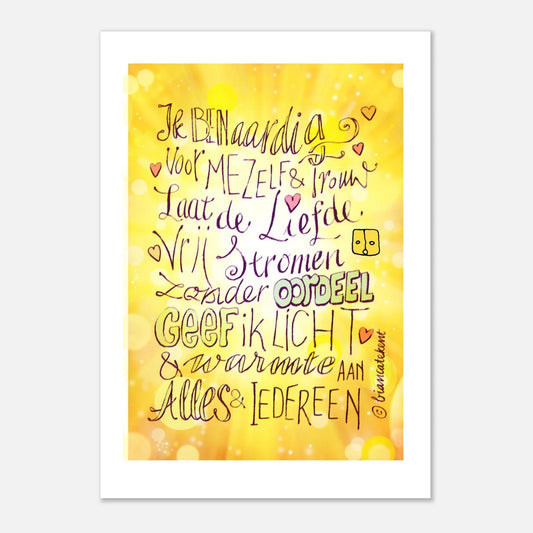 Ik BEN aardig
voor MEZELF & Trouw
Laat de Liefde
Vrij Stromen
zonder OORDEEL
GEEF iK LICHT
& warmte AAN
ALLES & IEDEREEN
© biancatekent